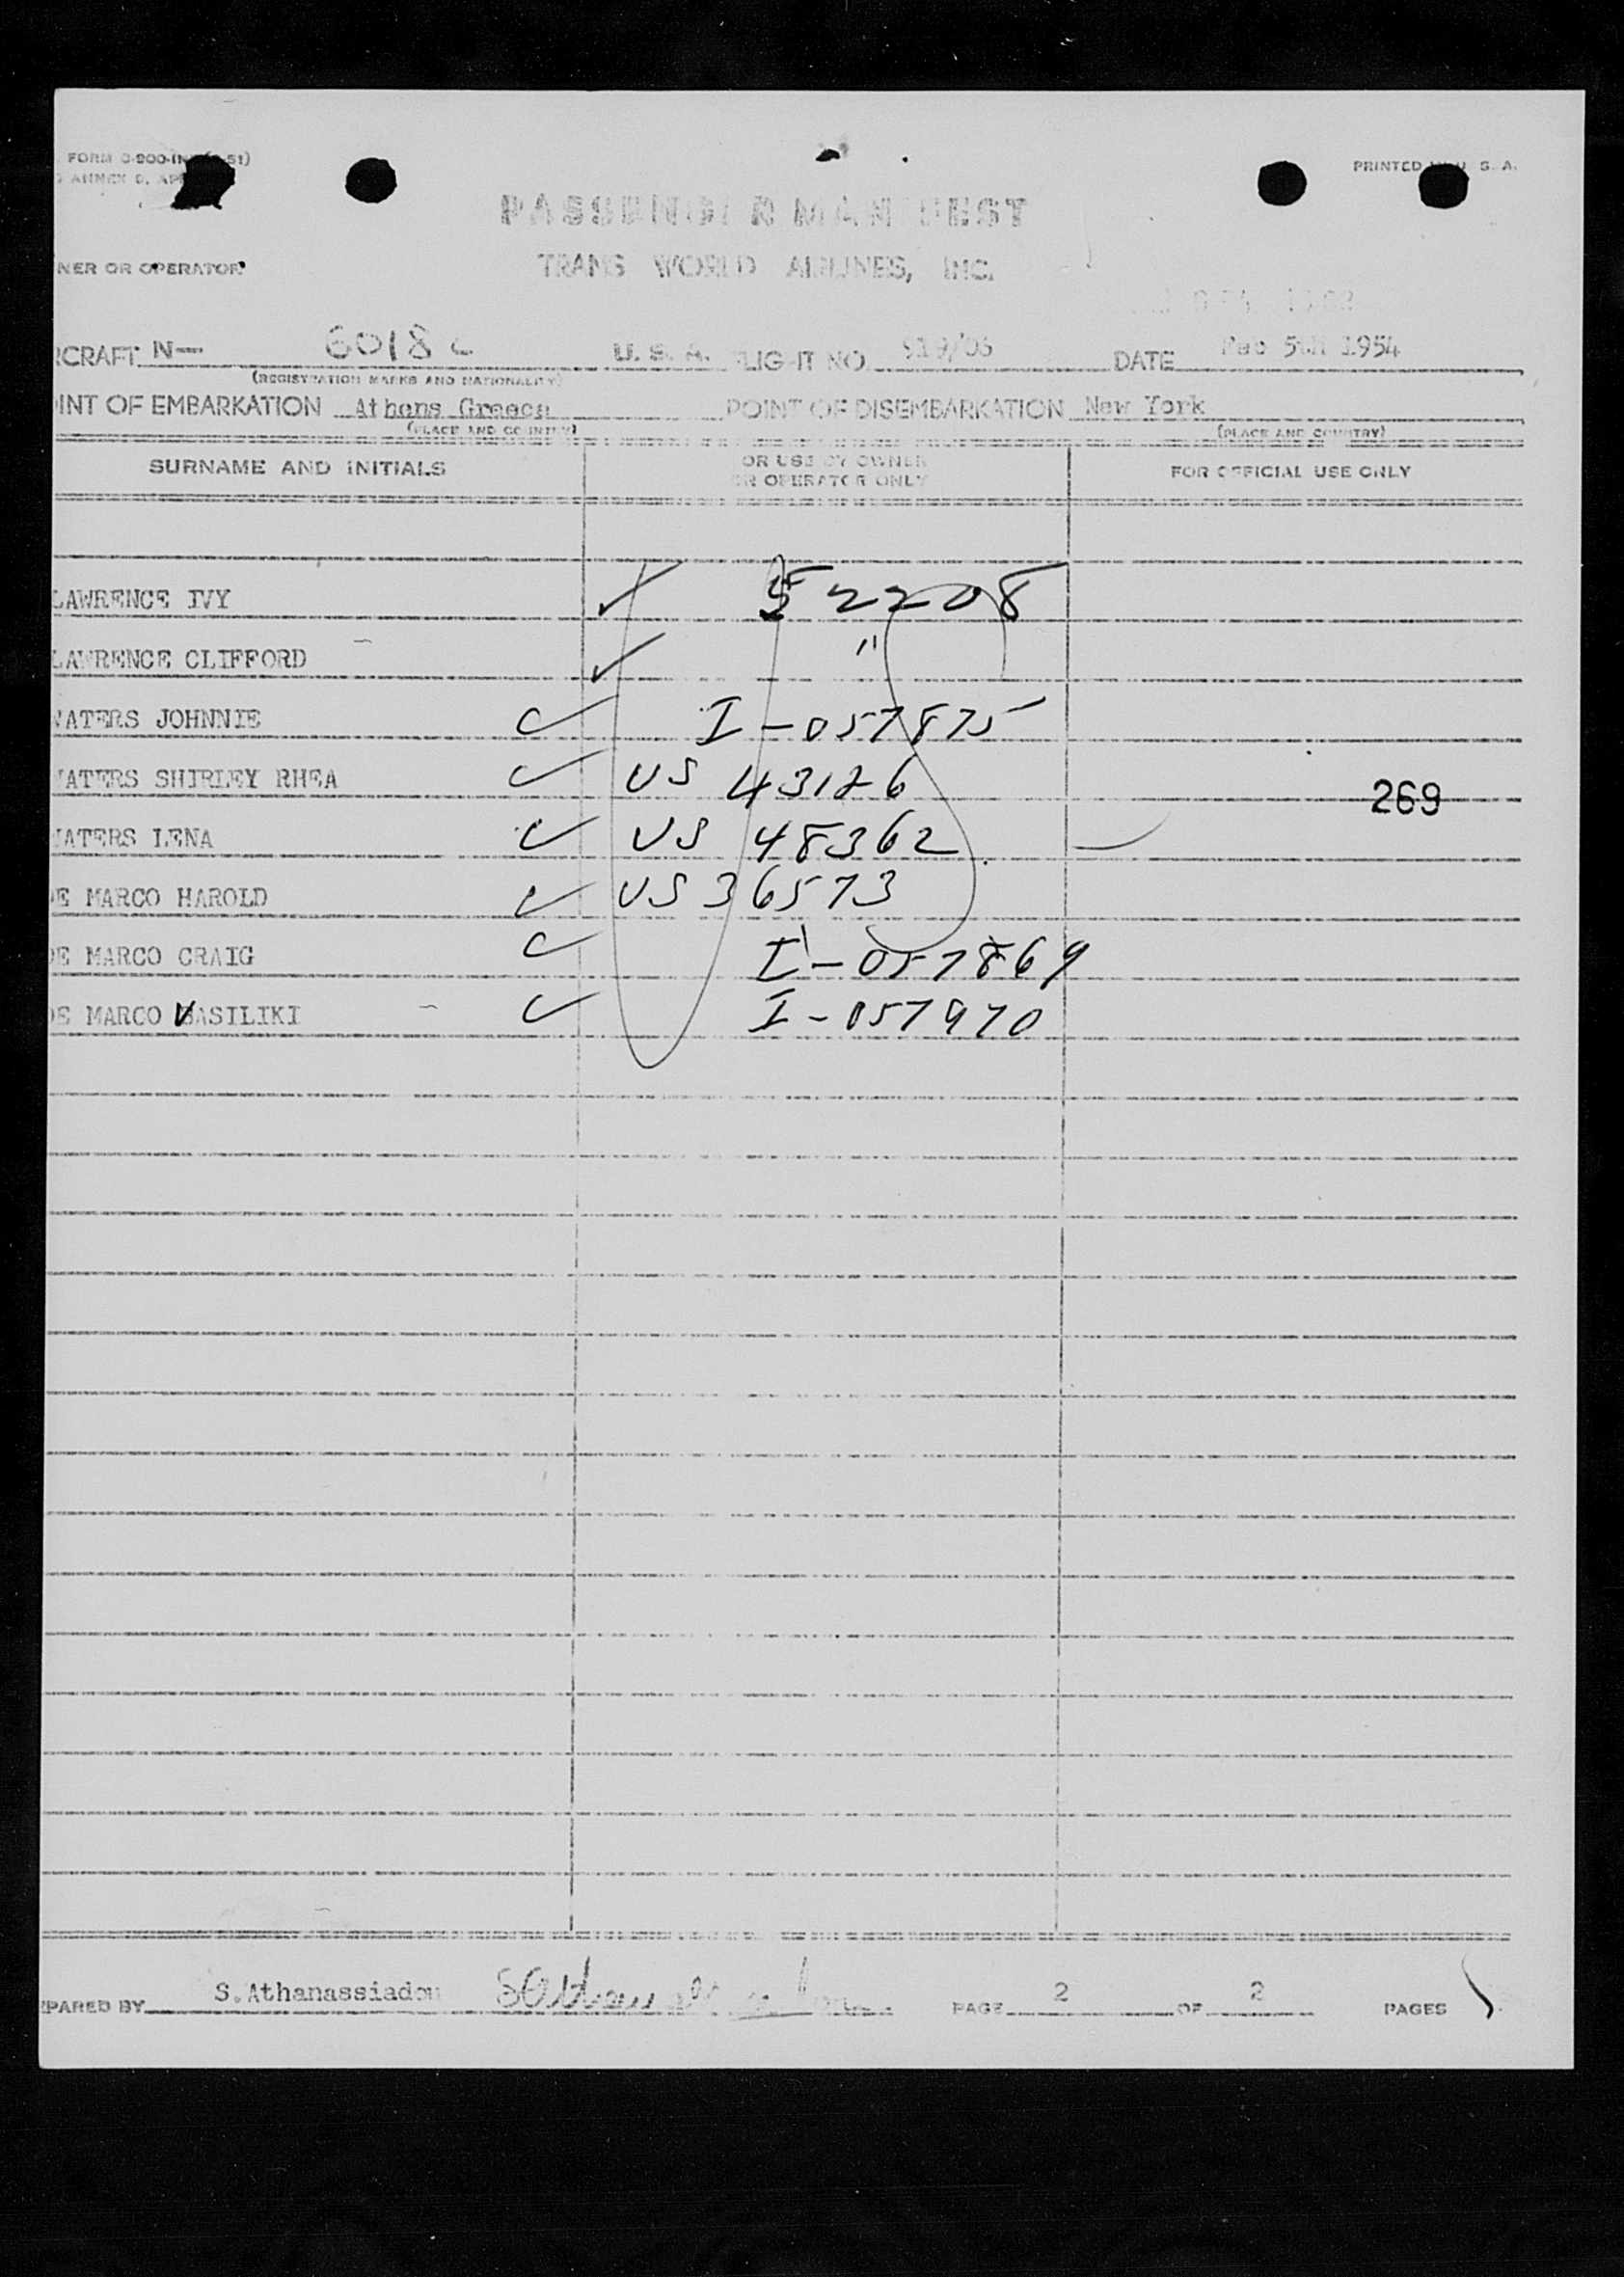 FORM O-900-IN (-51)
ANNEX 9, AP
PRINTED IN U. S. A.
PASSENGER MANIFEST
NER OR OPERATOR
TRANS WORLD AIRLINES, INC.
RCRAFT N— 6018 C U. S. A. FLIGHT NO. 919/05 DATE Feb 5th 1954
(REGISTRATION MARKS AND NATIONALITY)
INT OF EMBARKATION Athens Greece POINT OF DISEMBARKATION New York
(PLACE AND COUNTRY) (PLACE AND COUNTRY)
SURNAME AND INITIALS FOR USE BY OWNER OR OPERATOR ONLY FOR OFFICIAL USE ONLY
LAWRENCE IVY ✓ 52208
LAWRENCE CLIFFORD ✓ "
WATERS JOHNNIE ✓ I-057875
WATERS SHIRLEY RHEA ✓ US 43126
269
WATERS LENA ✓ US 48362
DE MARCO HAROLD ✓ US 36573
DE MARCO CRAIG ✓ I-057869
DE MARCO VASILIKI ✓ I-057970
EPARED BY S.Athanassiadou PAGE 2 OF 2 PAGES